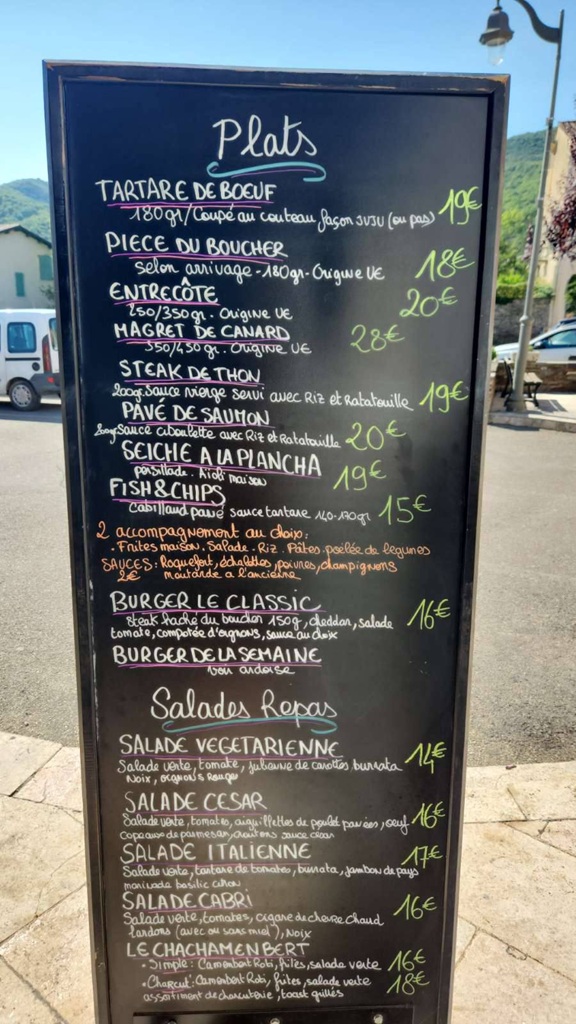 Plats
TARTARE DE BOEUF 19€
180gr/Coupé au couteau façon JUJU (ou pas)
PIECE DU BOUCHER 18€
selon arrivage - 180gr - Origine UE
ENTRECÔTE 20€
250/350gr. Origine UE
MAGRET DE CANARD 28€
350/450gr. Origine UE
STEAK DE THON
200gr Sauce vierge servi avec Riz et Ratatouille 19€
PAVÉ DE SAUMON
200gr Sauce ciboulette avec Riz et Ratatouille 20€
SEICHE A LA PLANCHA 19€
persillade. Aioli maison
FISH&CHIPS 15€
Cabillaud pané sauce tartare 140-170gr
2 accompagnement au choix:
. Frites maison. Salade. Riz. Pâtes. poêlée de légumes
SAUCES: Roquefort, échalottes, poivres, champignons
2€ moutarde a l'ancienne
BURGER LE CLASSIC 16€
Steak haché du boucher 150g, cheddar, salade
tomate, compotée d'oignons, sauce au choix
BURGER DE LA SEMAINE
voir ardoise
Salades Repas
SALADE VEGETARIENNE 14€
Salade verte, tomate, julienne de carottes, burrata
Noix, oignons Rouges
SALADE CESAR
Salade verte, tomates, aiguillettes de poulet panées, oeuf 16€
Copeaux de parmesan, croutons sauce cesar
SALADE ITALIENNE 17€
Salade verte, tartare de tomates, burrata, jambon de pays
marinade basilic citron
SALADE CABRI 16€
Salade verte, tomates, cigare de chevre Chaud
lardons (avec ou sans miel), Noix
LE CHACHAMENBERT
• Simple: Camenbert Roti, frites, salade verte 16€
• Charcut: Camenbert Roti, frites, salade verte 18€
assortiment de charcuterie, toast grillés